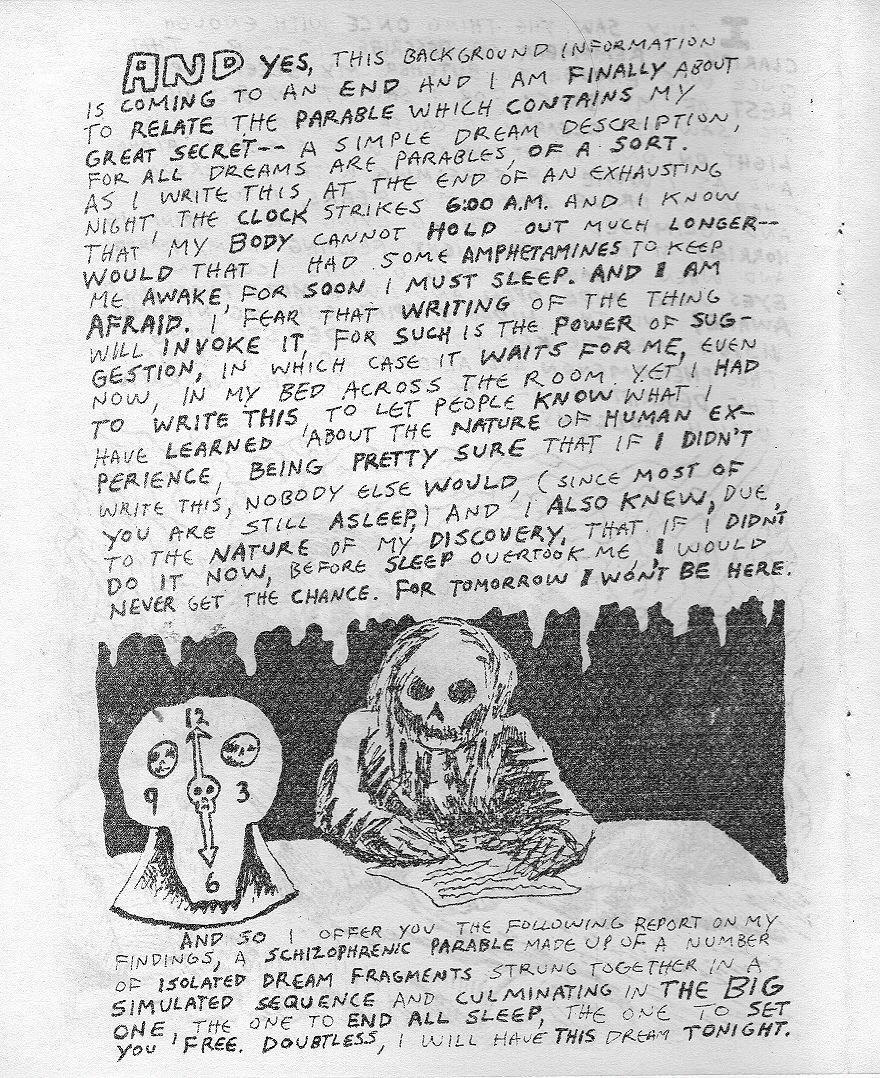 AND YES, THIS BACKGROUND INFORMATION
IS COMING TO AN END AND I AM FINALLY ABOUT
TO RELATE THE PARABLE WHICH CONTAINS MY
GREAT SECRET-- A SIMPLE DREAM DESCRIPTION,
FOR ALL DREAMS ARE PARABLES, OF A SORT.
AS I WRITE THIS, AT THE END OF AN EXHAUSTING
NIGHT, THE CLOCK STRIKES 6:00 A.M. AND I KNOW
THAT MY BODY CANNOT HOLD OUT MUCH LONGER--
WOULD THAT I HAD SOME AMPHETAMINES TO KEEP
ME AWAKE, FOR SOON I MUST SLEEP. AND I AM
AFRAID. I FEAR THAT WRITING OF THE THING
WILL INVOKE IT, FOR SUCH IS THE POWER OF SUG-
GESTION, IN WHICH CASE IT WAITS FOR ME, EVEN
NOW, IN MY BED ACROSS THE ROOM. YET I HAD
TO WRITE THIS, TO LET PEOPLE KNOW WHAT I
HAVE LEARNED ABOUT THE NATURE OF HUMAN EX-
PERIENCE, BEING PRETTY SURE THAT IF I DIDN'T
WRITE THIS, NOBODY ELSE WOULD, (SINCE MOST OF
YOU ARE STILL ASLEEP,) AND I ALSO KNEW, DUE,
TO THE NATURE OF MY DISCOVERY, THAT IF I DIDN'T
DO IT NOW, BEFORE SLEEP OVERTOOK ME, I WOULD
NEVER GET THE CHANCE. FOR TOMORROW I WON'T BE HERE.
12
9 3
6
AND SO I OFFER YOU THE FOLLOWING REPORT ON MY
FINDINGS, A SCHIZOPHRENIC PARABLE MADE UP OF A NUMBER
OF ISOLATED DREAM FRAGMENTS STRUNG TOGETHER IN A
SIMULATED SEQUENCE AND CULMINATING IN THE BIG
ONE, THE ONE TO END ALL SLEEP, THE ONE TO SET
YOU FREE. DOUBTLESS, I WILL HAVE THIS DREAM TONIGHT.